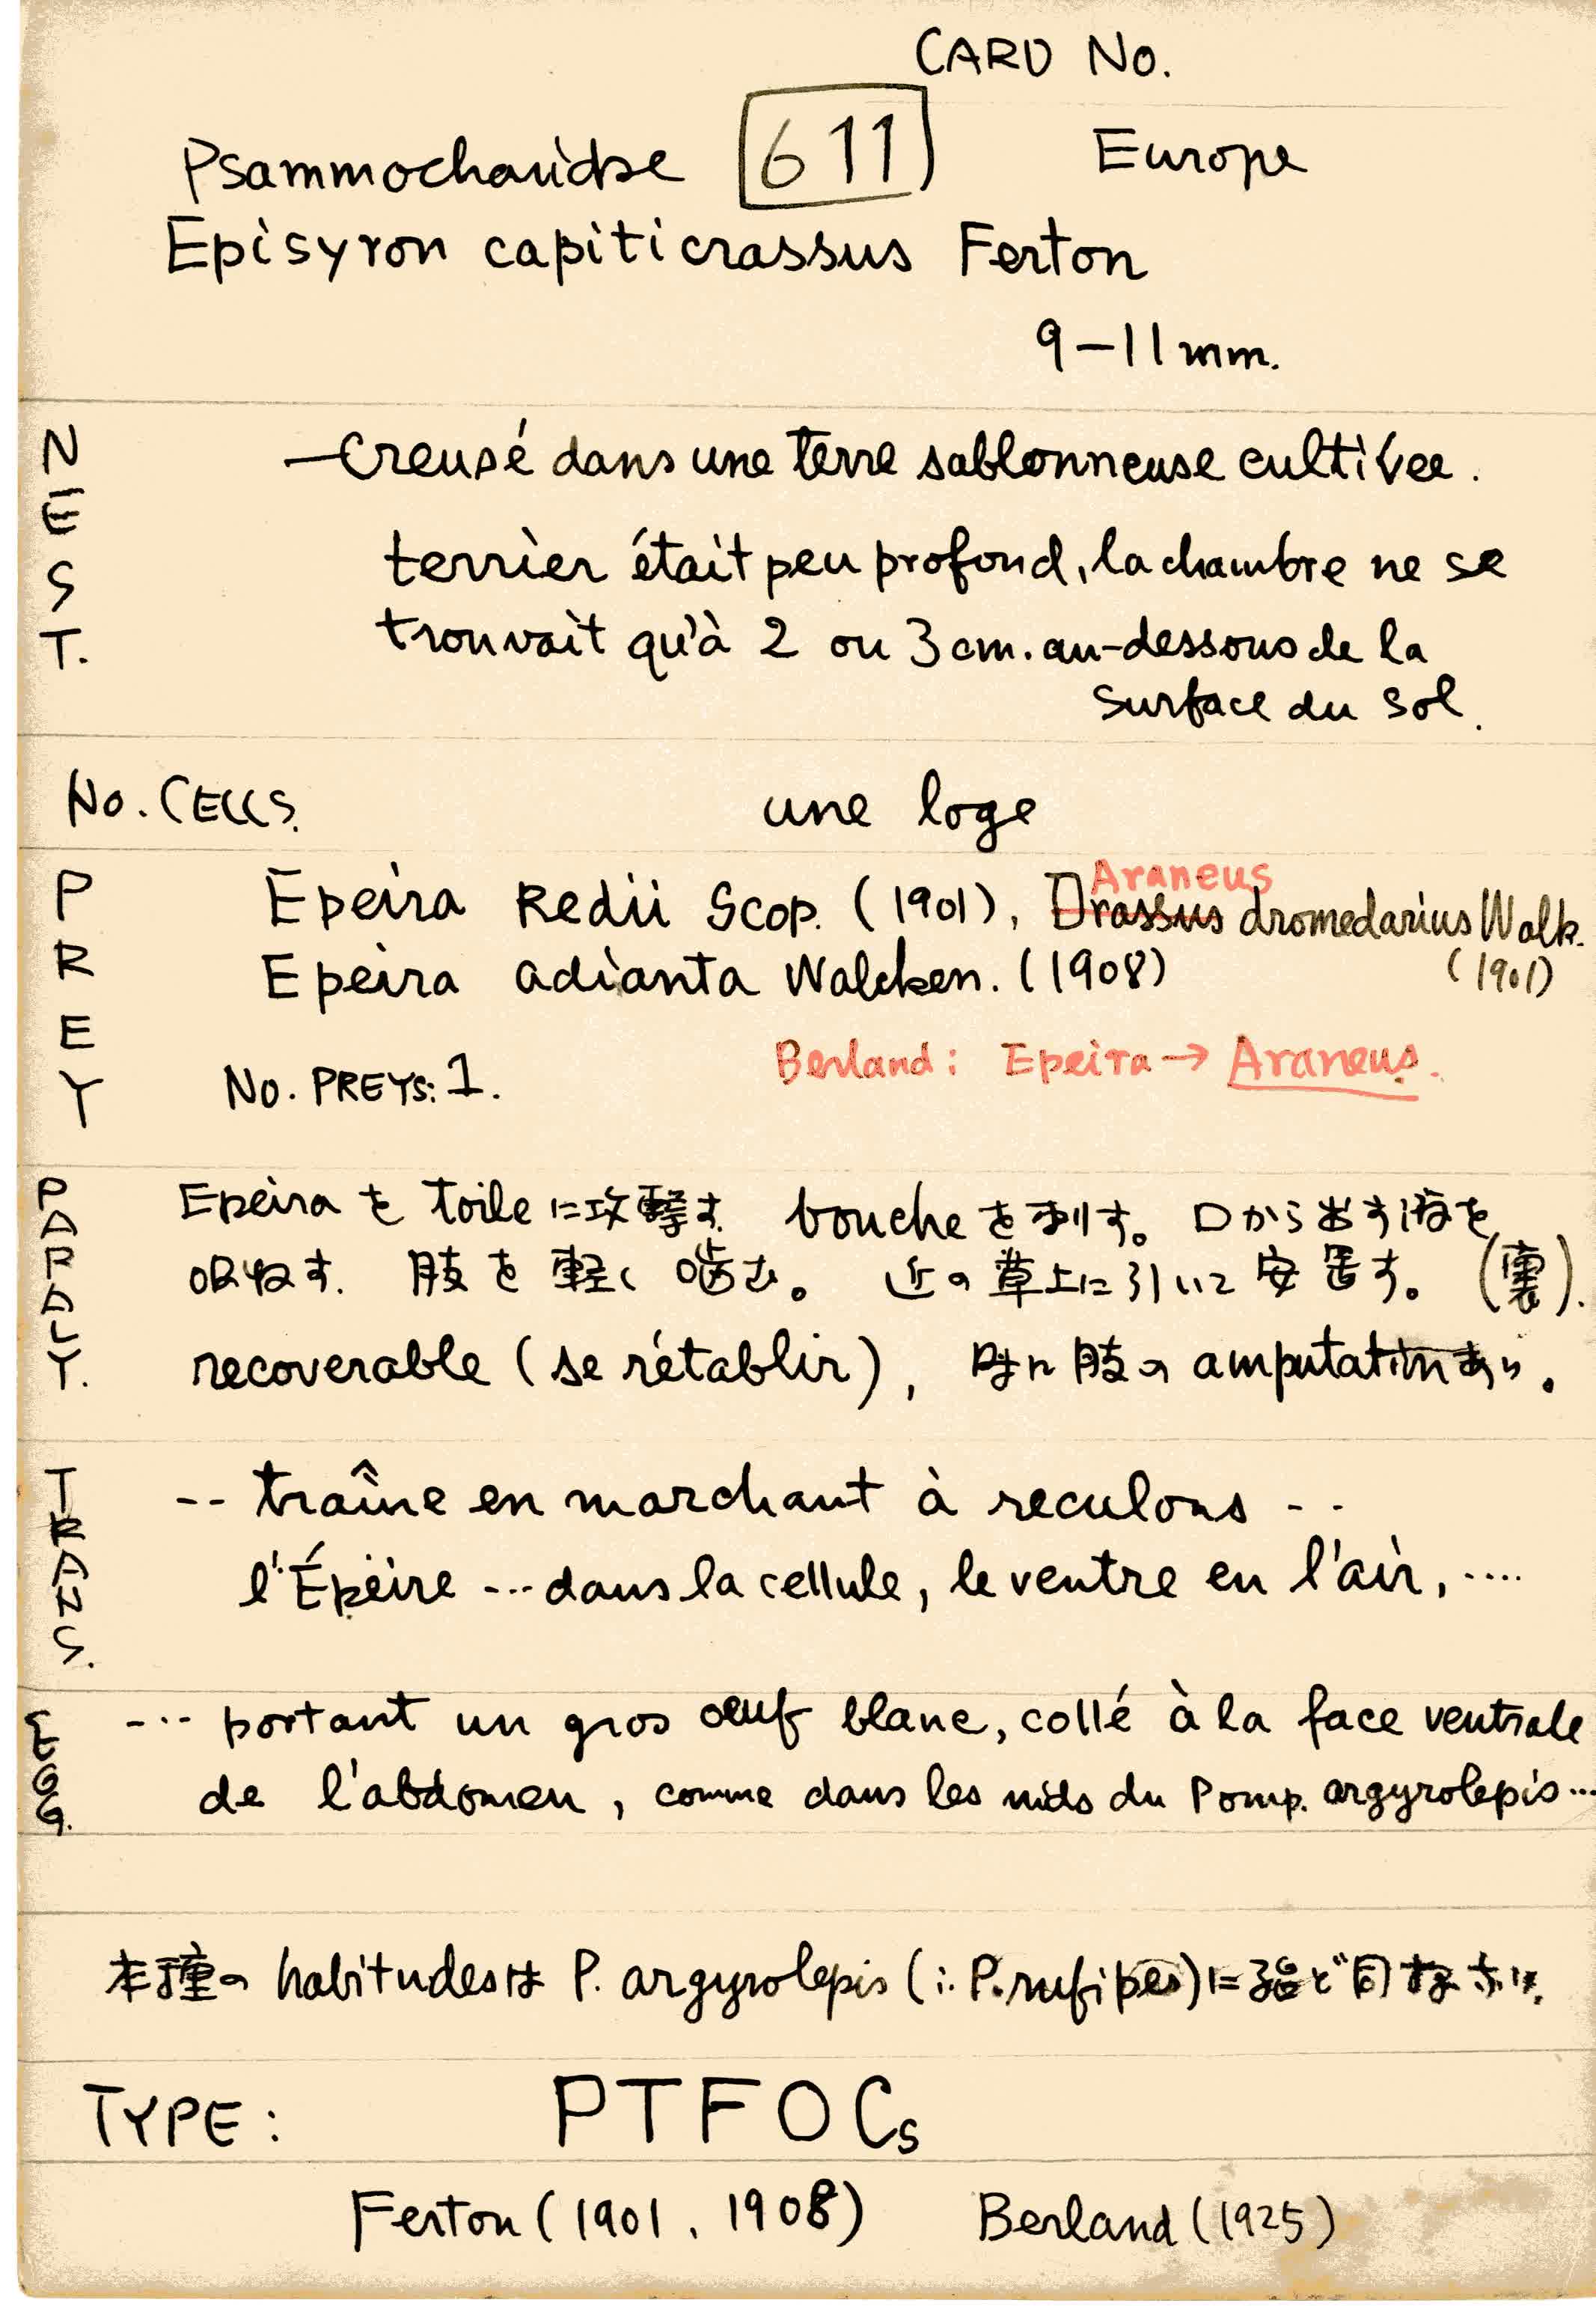 CARD No.
Psammocharidae 611 Europe
Episyron capiticrassus Ferton
9–11 mm.
NEST. —Creusé dans une terre sablonneuse cultivee.
terrier était peu profond, la chambre ne se
trouvait qu'à 2 ou 3 cm. au-dessous de la
surface du sol.
No. CELLS. une loge
PREY Epeira Redii Scop. (1901), Drassus Araneus dromedarius Walk.
Epeira adianta Walcken. (1908) (1901)
No. PREYS: 1. Berland: Epeira → Araneus.
PARALY. Epeira を toile に攻撃す. bouche を刺す。口から出す液を
吸ねす. 肢を軽く噛む。近の草上に引いて安置す。(裏).
recoverable (se rétablir), 時に肢の amputation あり。
TRANS. -- traîne en marchant à reculons --
l'Épeire --- dans la cellule, le ventre en l'air, ....
EGG. --- portant un gros oeuf blanc, collé à la face ventrale
de l'abdomen, comme dans les nids du Pomp. argyrolepis ...
本種の habitudes は P. argyrolepis (i. P. rufipes) に殆ど同
TYPE: PTFOCs
Ferton (1901, 1908) Berland (1925)